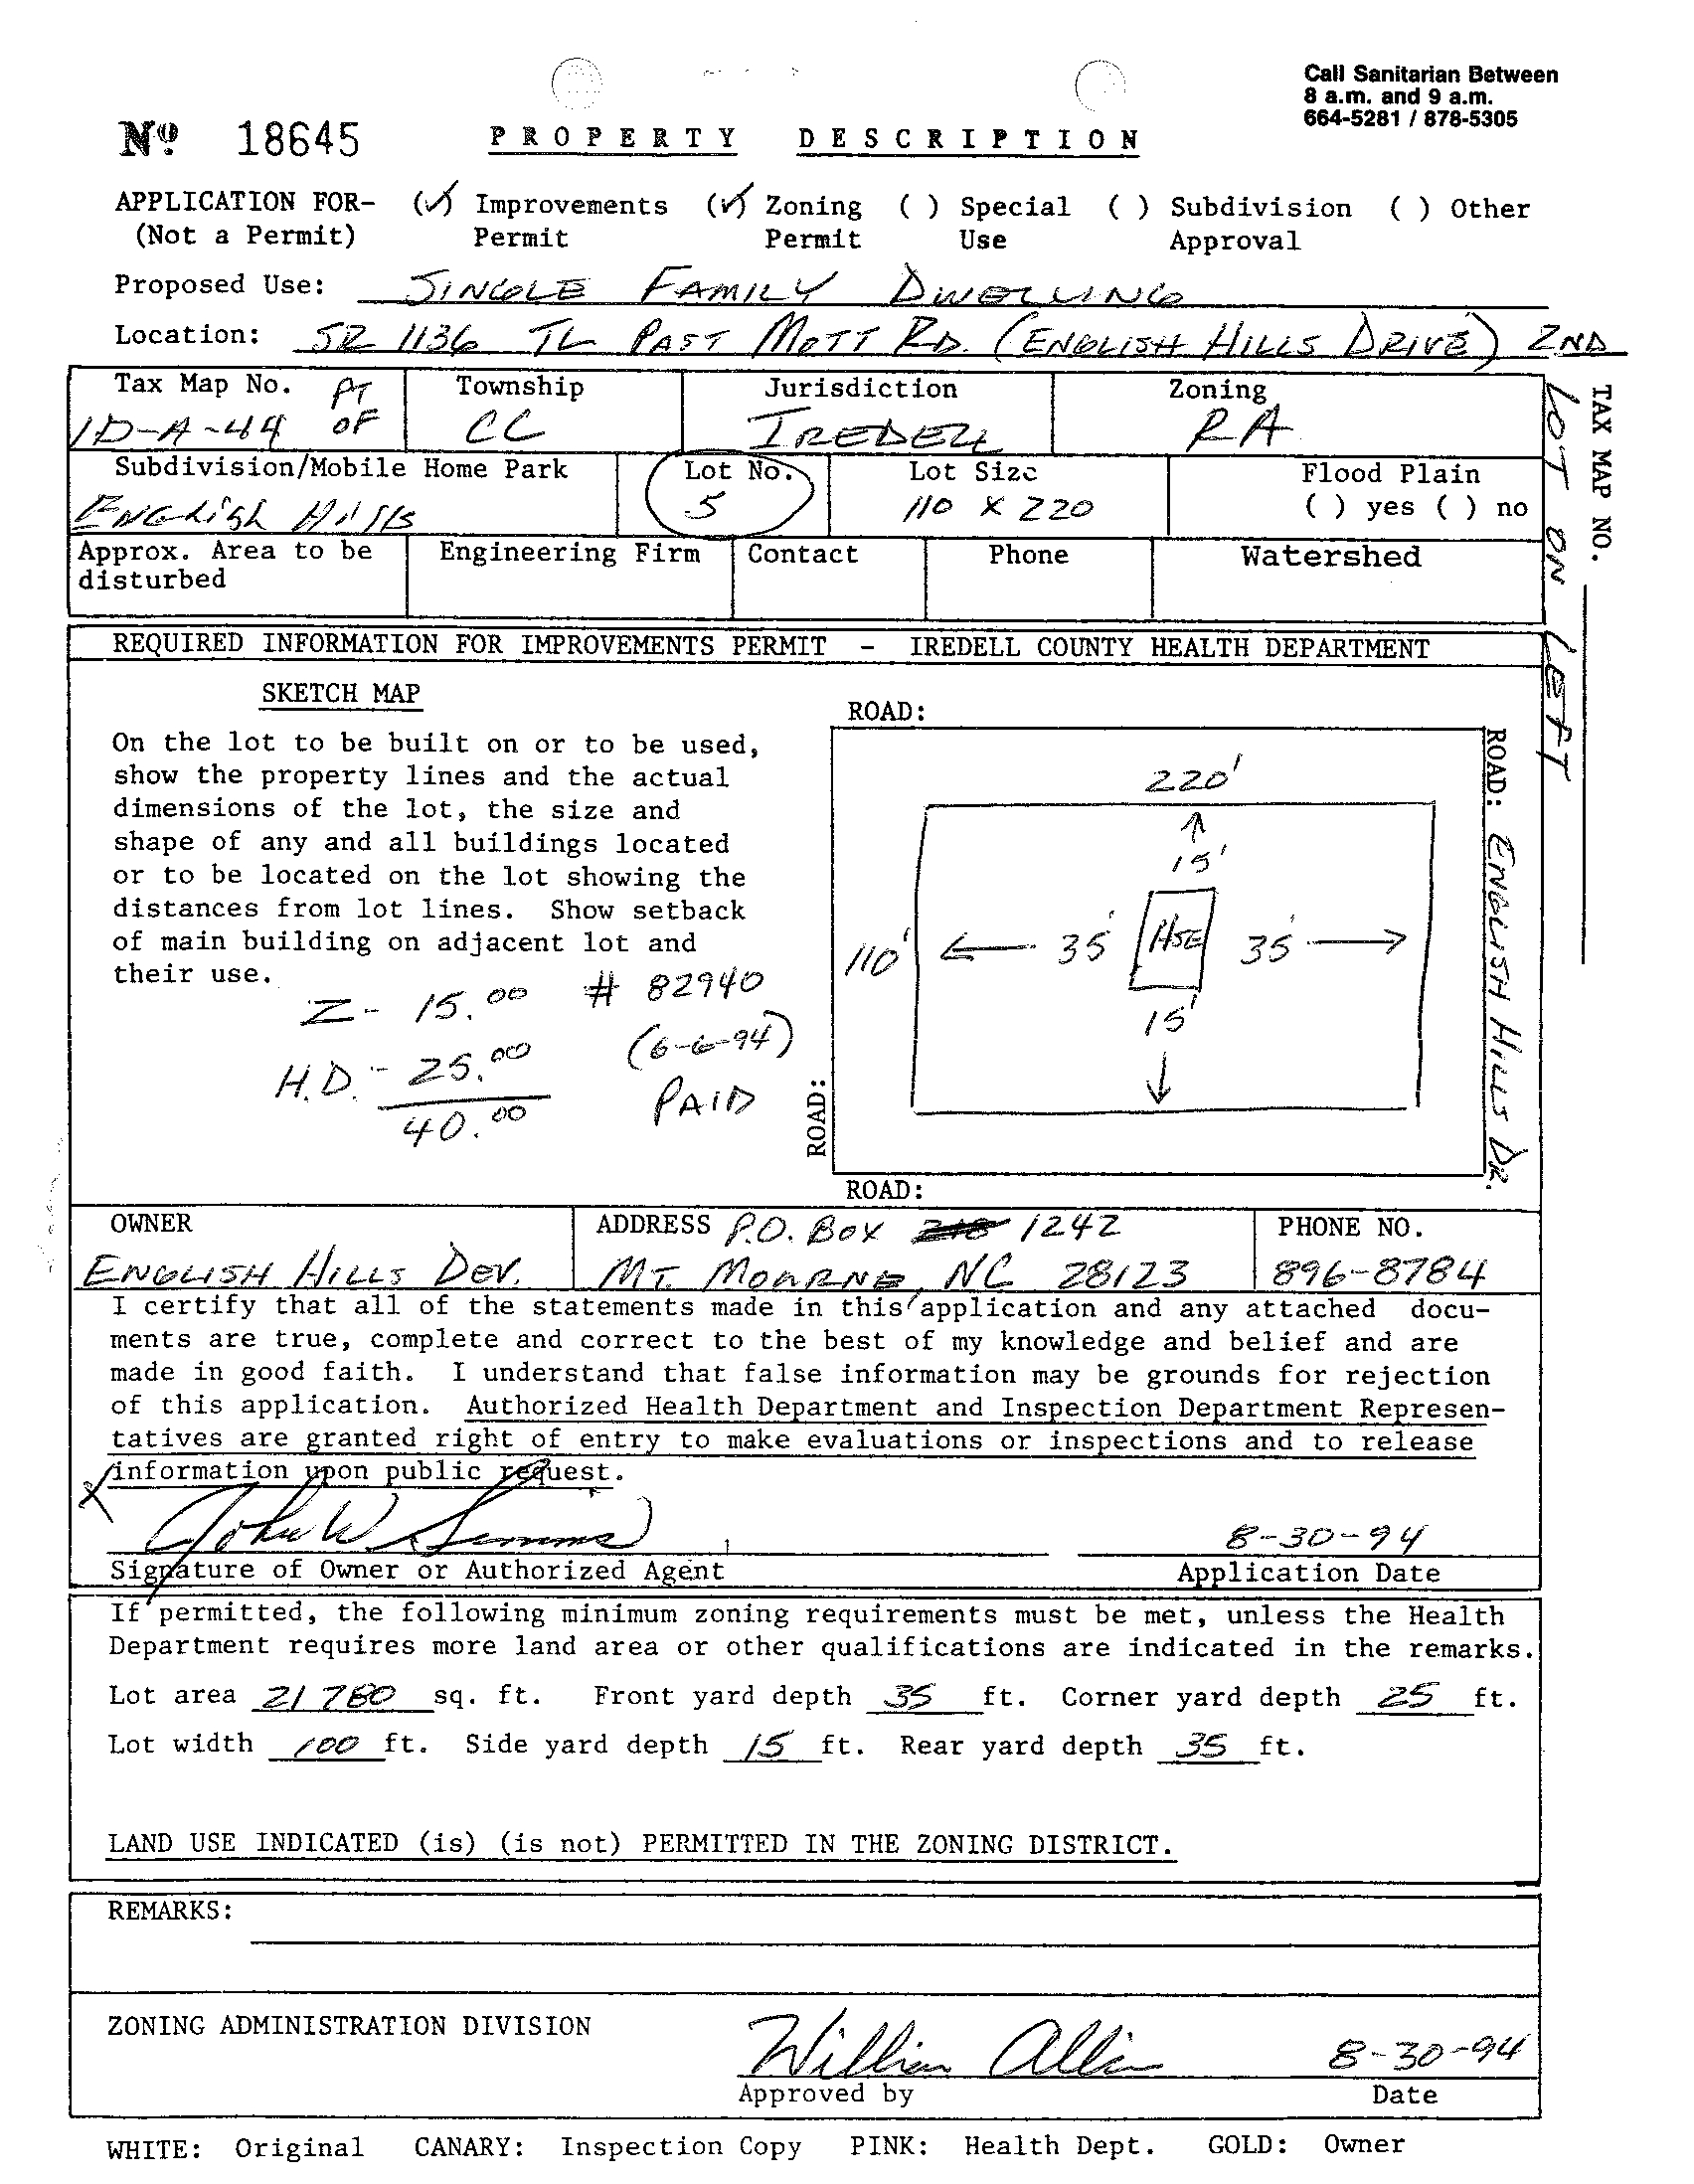 Call Sanitarian Between
8 a.m. and 9 a.m.
664-5281 / 878-5305
Nº 18645 PROPERTY DESCRIPTION
APPLICATION FOR- (✓) Improvements (✓) Zoning ( ) Special ( ) Subdivision ( ) Other
(Not a Permit) Permit Permit Use Approval
Proposed Use: SINGLE FAMILY DWELLING
Location: SR 1136 TL PAST MOTT RD. (ENGLISH HILLS DRIVE) 2ND
LOT ON LEFT
TAX MAP NO.
Tax Map No. PT OF Township Jurisdiction Zoning
1D-A-44 CC IREDELL RA
Subdivision/Mobile Home Park Lot No. Lot Size Flood Plain
English Hills 5 110 X 220 ( ) yes ( ) no
Approx. Area to be Engineering Firm Contact Phone Watershed
disturbed
REQUIRED INFORMATION FOR IMPROVEMENTS PERMIT - IREDELL COUNTY HEALTH DEPARTMENT
SKETCH MAP
On the lot to be built on or to be used,
show the property lines and the actual
dimensions of the lot, the size and
shape of any and all buildings located
or to be located on the lot showing the
distances from lot lines. Show setback
of main building on adjacent lot and
their use.
Z- 15.00 # 82940
H.D.- 25.00 (6-6-94)
40.00 PAID
ROAD:
220'
15'
110' 35' HSE 35'
15'
ROAD: ENGLISH HILLS DR.
ROAD:
ROAD:
OWNER ADDRESS P.O. BOX 1242 PHONE NO.
ENGLISH HILLS DEV. MT. MOURNE, NC 28123 896-8784
I certify that all of the statements made in this application and any attached docu-
ments are true, complete and correct to the best of my knowledge and belief and are
made in good faith. I understand that false information may be grounds for rejection
of this application. Authorized Health Department and Inspection Department Represen-
tatives are granted right of entry to make evaluations or inspections and to release
information upon public request.
X John W Simms 8-30-94
Signature of Owner or Authorized Agent Application Date
If permitted, the following minimum zoning requirements must be met, unless the Health
Department requires more land area or other qualifications are indicated in the remarks.
Lot area 21780 sq. ft. Front yard depth 35 ft. Corner yard depth 25 ft.
Lot width 100 ft. Side yard depth 15 ft. Rear yard depth 35 ft.
LAND USE INDICATED (is) (is not) PERMITTED IN THE ZONING DISTRICT.
REMARKS:
ZONING ADMINISTRATION DIVISION William Allin 8-30-94
Approved by Date
WHITE: Original CANARY: Inspection Copy PINK: Health Dept. GOLD: Owner